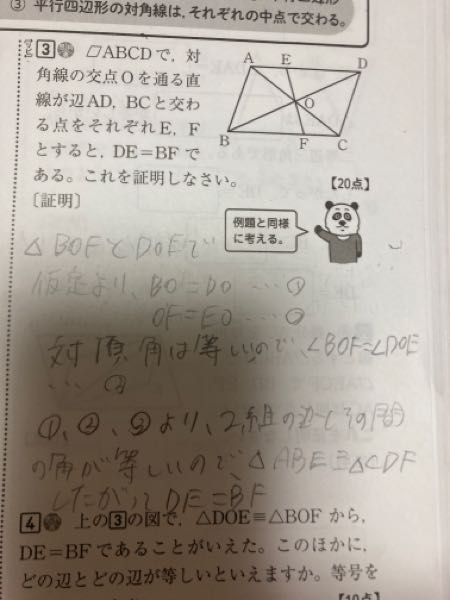 ③ 平行四辺形の対角線は,それぞれの中点で交わる。
3 ▱ABCDで,対
角線の交点Oを通る直
線が辺AD,BCと交わ
る点をそれぞれE,F
とすると,DE=BFで
ある。これを証明しなさい。
【20点】
A E D
O
B F C
〔証明〕
例題と同様
に考える。
△BOFとDOEで
仮定より、BO=DO…①
OF=EO…②
対頂角は等しいので、∠BOF=∠DOE
…③
①、②、③より、2組の辺とその間
の角が等しいので、△ABE≡△CDF
したがってDE=BF
4 上の3の図で,△DOE≡△BOFから,
DE=BFであることがいえた。このほかに,
どの辺とどの辺が等しいといえますか。等号を
【10点】